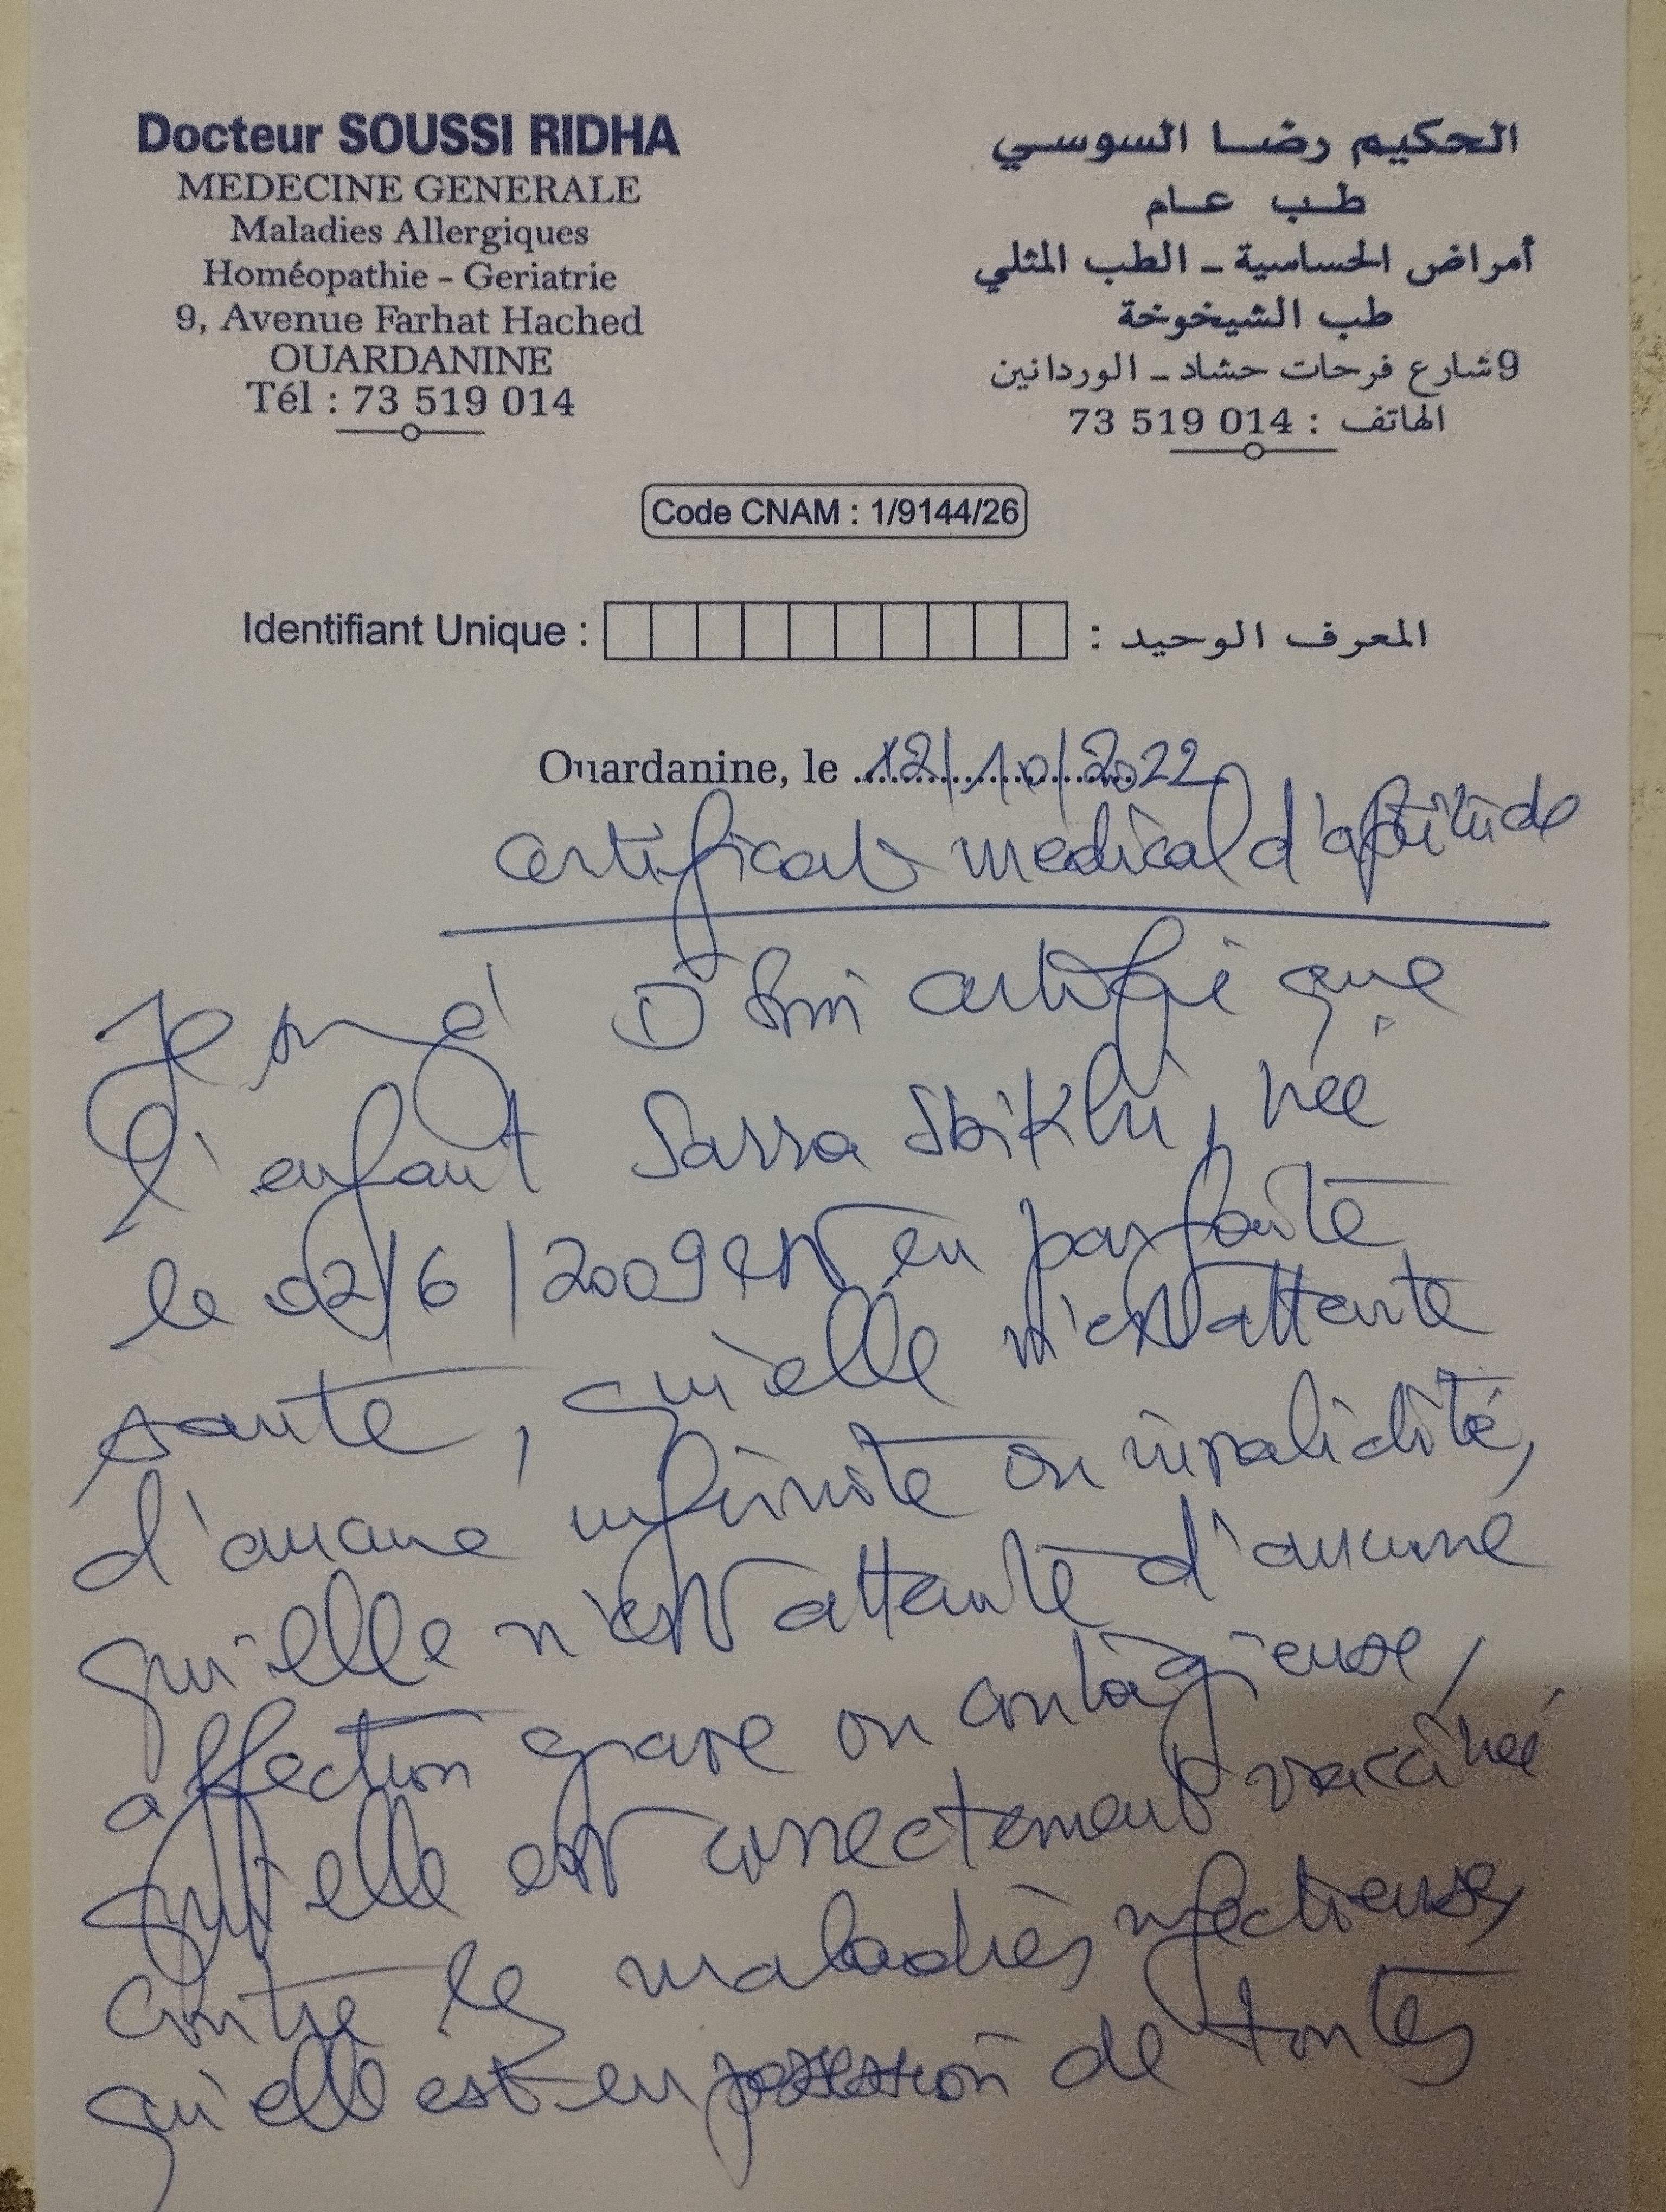 Docteur SOUSSI RIDHA
MEDECINE GENERALE
Maladies Allergiques
Homéopathie - Geriatrie
9, Avenue Farhat Hached
OUARDANINE
Tél : 73 519 014
الحكيم رضا السوسي
طب عام
أمراض الحساسية - الطب المثلي
طب الشيخوخة
9 شارع فرحات حشاد - الوردانين
الهاتف : 014 519 73
Code CNAM : 1/9144/26
Identifiant Unique : المعرف الوحيد :
Ouardanine, le 12/10/2022
certificat médical d'aptitude
Je certifie que
l'enfant Sarra Sbikhi, née
le 02/6/2009 est en parfaite
santé, qu'elle n'est atteinte
d'aucune infirmité ou invalidité,
qu'elle n'est atteinte d'aucune
affection grave ou contagieuse,
qu'elle est correctement vaccinée
contre les maladies infectieuses,
qu'elle est en possession de toutes